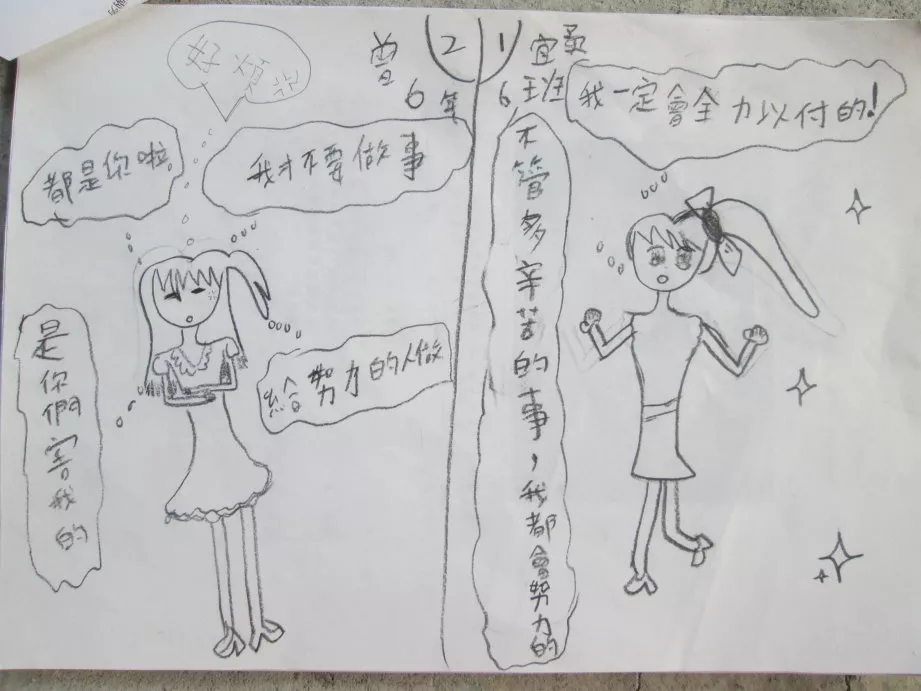 曾 2 1 宜柔
6年 6班
好煩ㄛ
都是你啦
我才不要做事
是你們害我的
給努力的人做
我一定會全力以付的!
不管多辛苦的事，我都會努力的